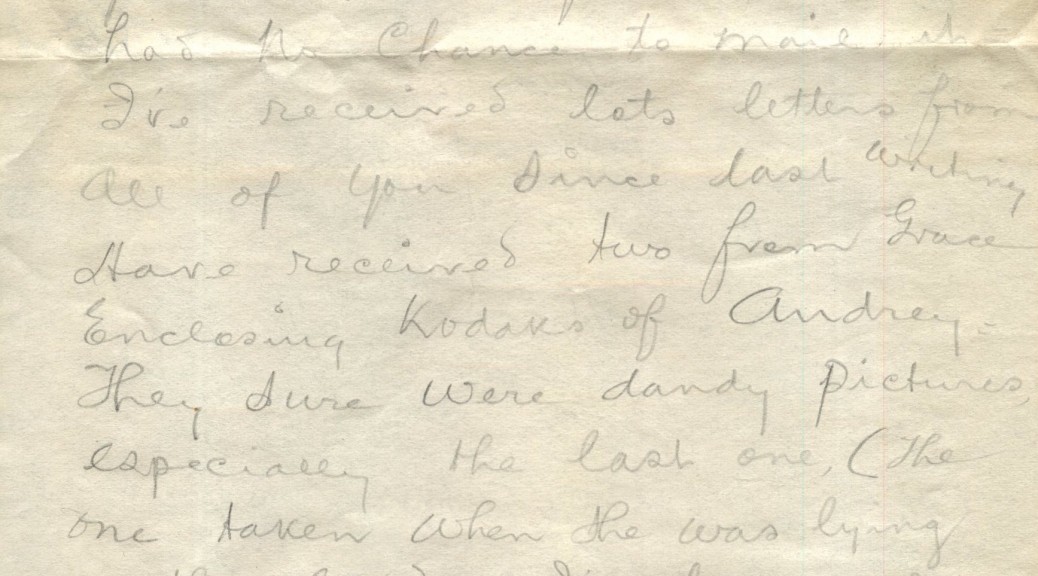 had no Chance to mail it
I've received lots letters from
All of you Since last writing
Have received two from Grace
Enclosing Kodaks of Audrey.
They sure were dandy pictures,
especially the last one, (The
one taken when she was lying